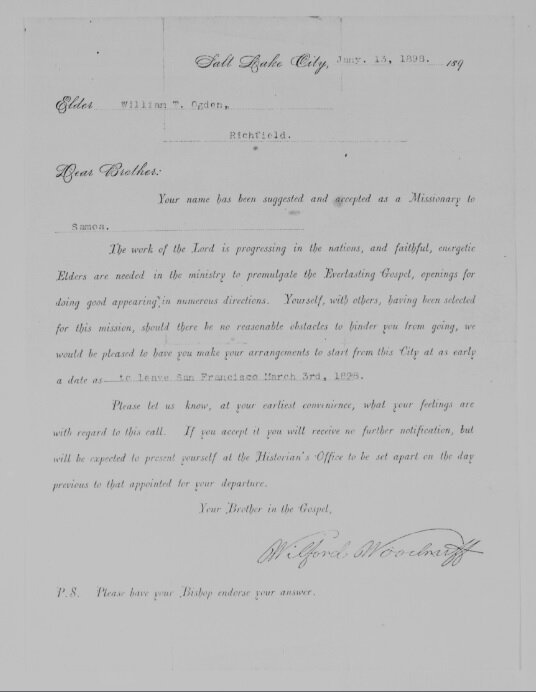 Salt Lake City, Jany. 13, 1898. 189
Elder William T. Ogden,
Richfield.
Dear Brother:
Your name has been suggested and accepted as a Missionary to
Samoa.
The work of the Lord is progressing in the nations, and faithful, energetic
Elders are needed in the ministry to promulgate the Everlasting Gospel, openings for
doing good appearing in numerous directions. Yourself, with others, having been selected
for this mission, should there be no reasonable obstacles to hinder you from going, we
would be pleased to have you make your arrangements to start from this City at as early
a date as to leave San Francisco March 3rd, 1898.
Please let us know, at your earliest convenience, what your feelings are
with regard to this call. If you accept it you will receive no further notification, but
will be expected to present yourself at the Historian's Office to be set apart on the day
previous to that appointed for your departure.
Your Brother in the Gospel,
Wilford Woodruff
P.S. Please have your Bishop endorse your answer.